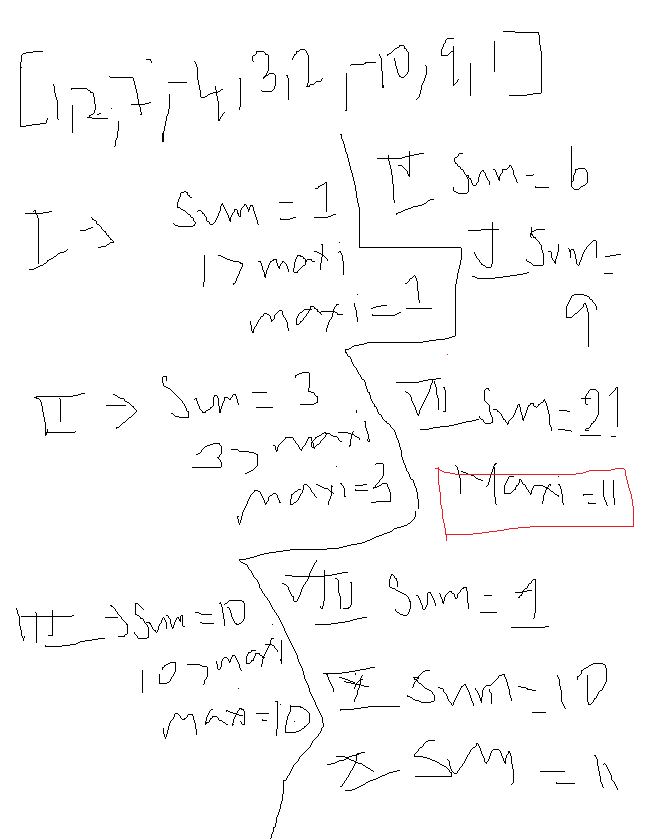 [1,2,7,-4,3,2,-10,9,1]
I → Sum = 1
1 > maxi
maxi = 1
II → Sum = 3
3 > maxi
maxi = 3
III → Sum = 10
10 > maxi
maxi = 10
IV Sum = 6
V Sum =
9
VII Sum = 
Maxi = 11
VIII Sum = 1
IX Sum = 10
X Sum = 11